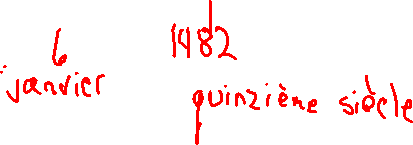 6 janvier 1482
quinzième siècle